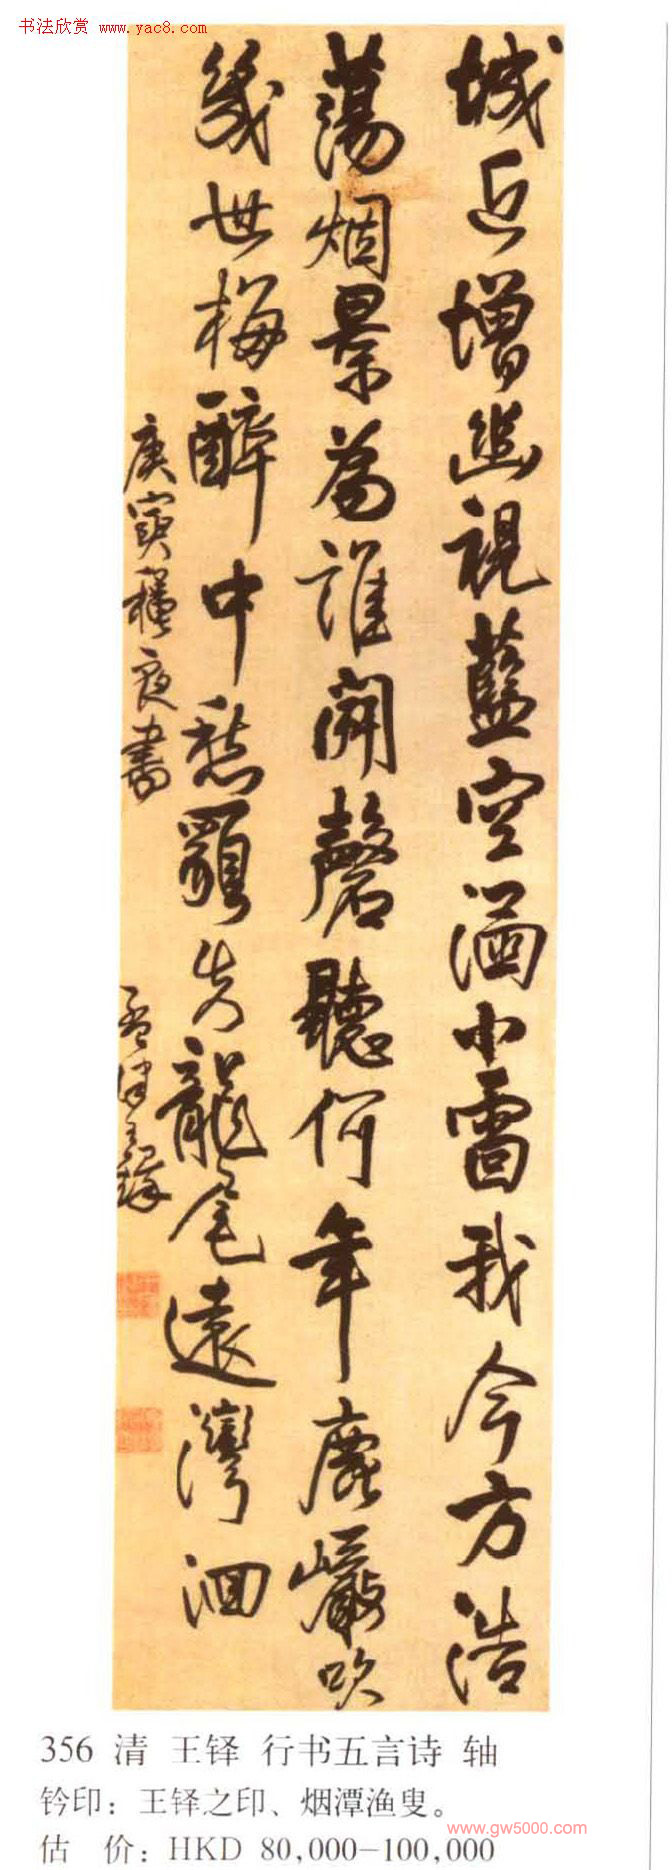 书法欣赏 www.yac8.com
城近增幽视藍空涵小雷我今方浩
蕩烟景為誰開磬聽何年鹿巖吹
幾世梅醉中愁顧失龍尾遠灣洄
庚寅夜書
孟津王鐸
356 清 王铎 行书五言诗 轴
钤印：王铎之印、烟潭渔叟。
估 价：HKD 80,000-100,000
www.gw5000.com